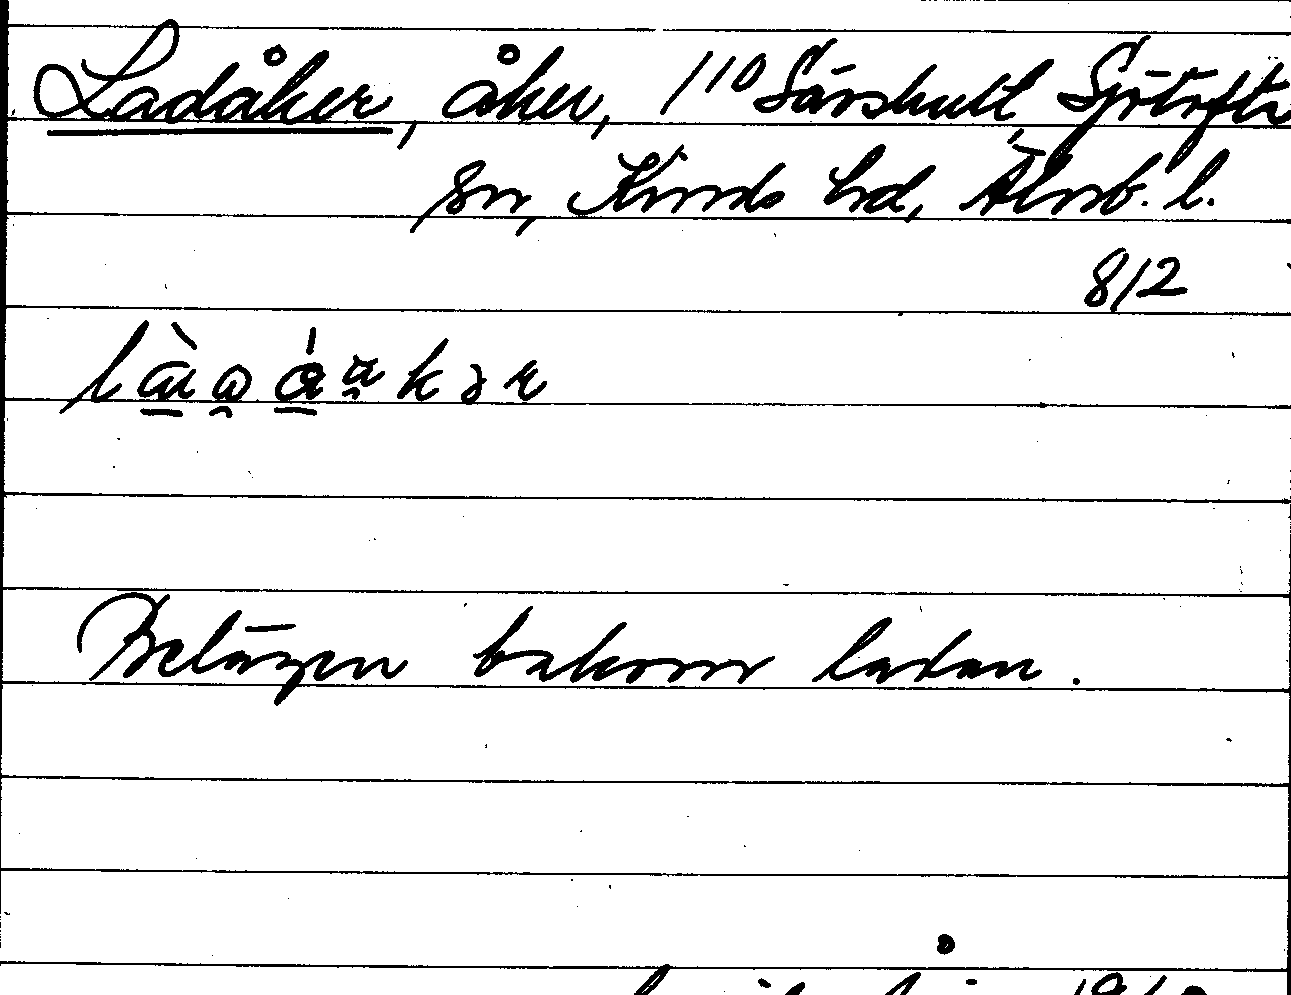 Ladåker, åker, 110 Särshult, Sjötofta
sn, Kinds hd, Älvsb. l.
8/2
Belägen bakom ladan.